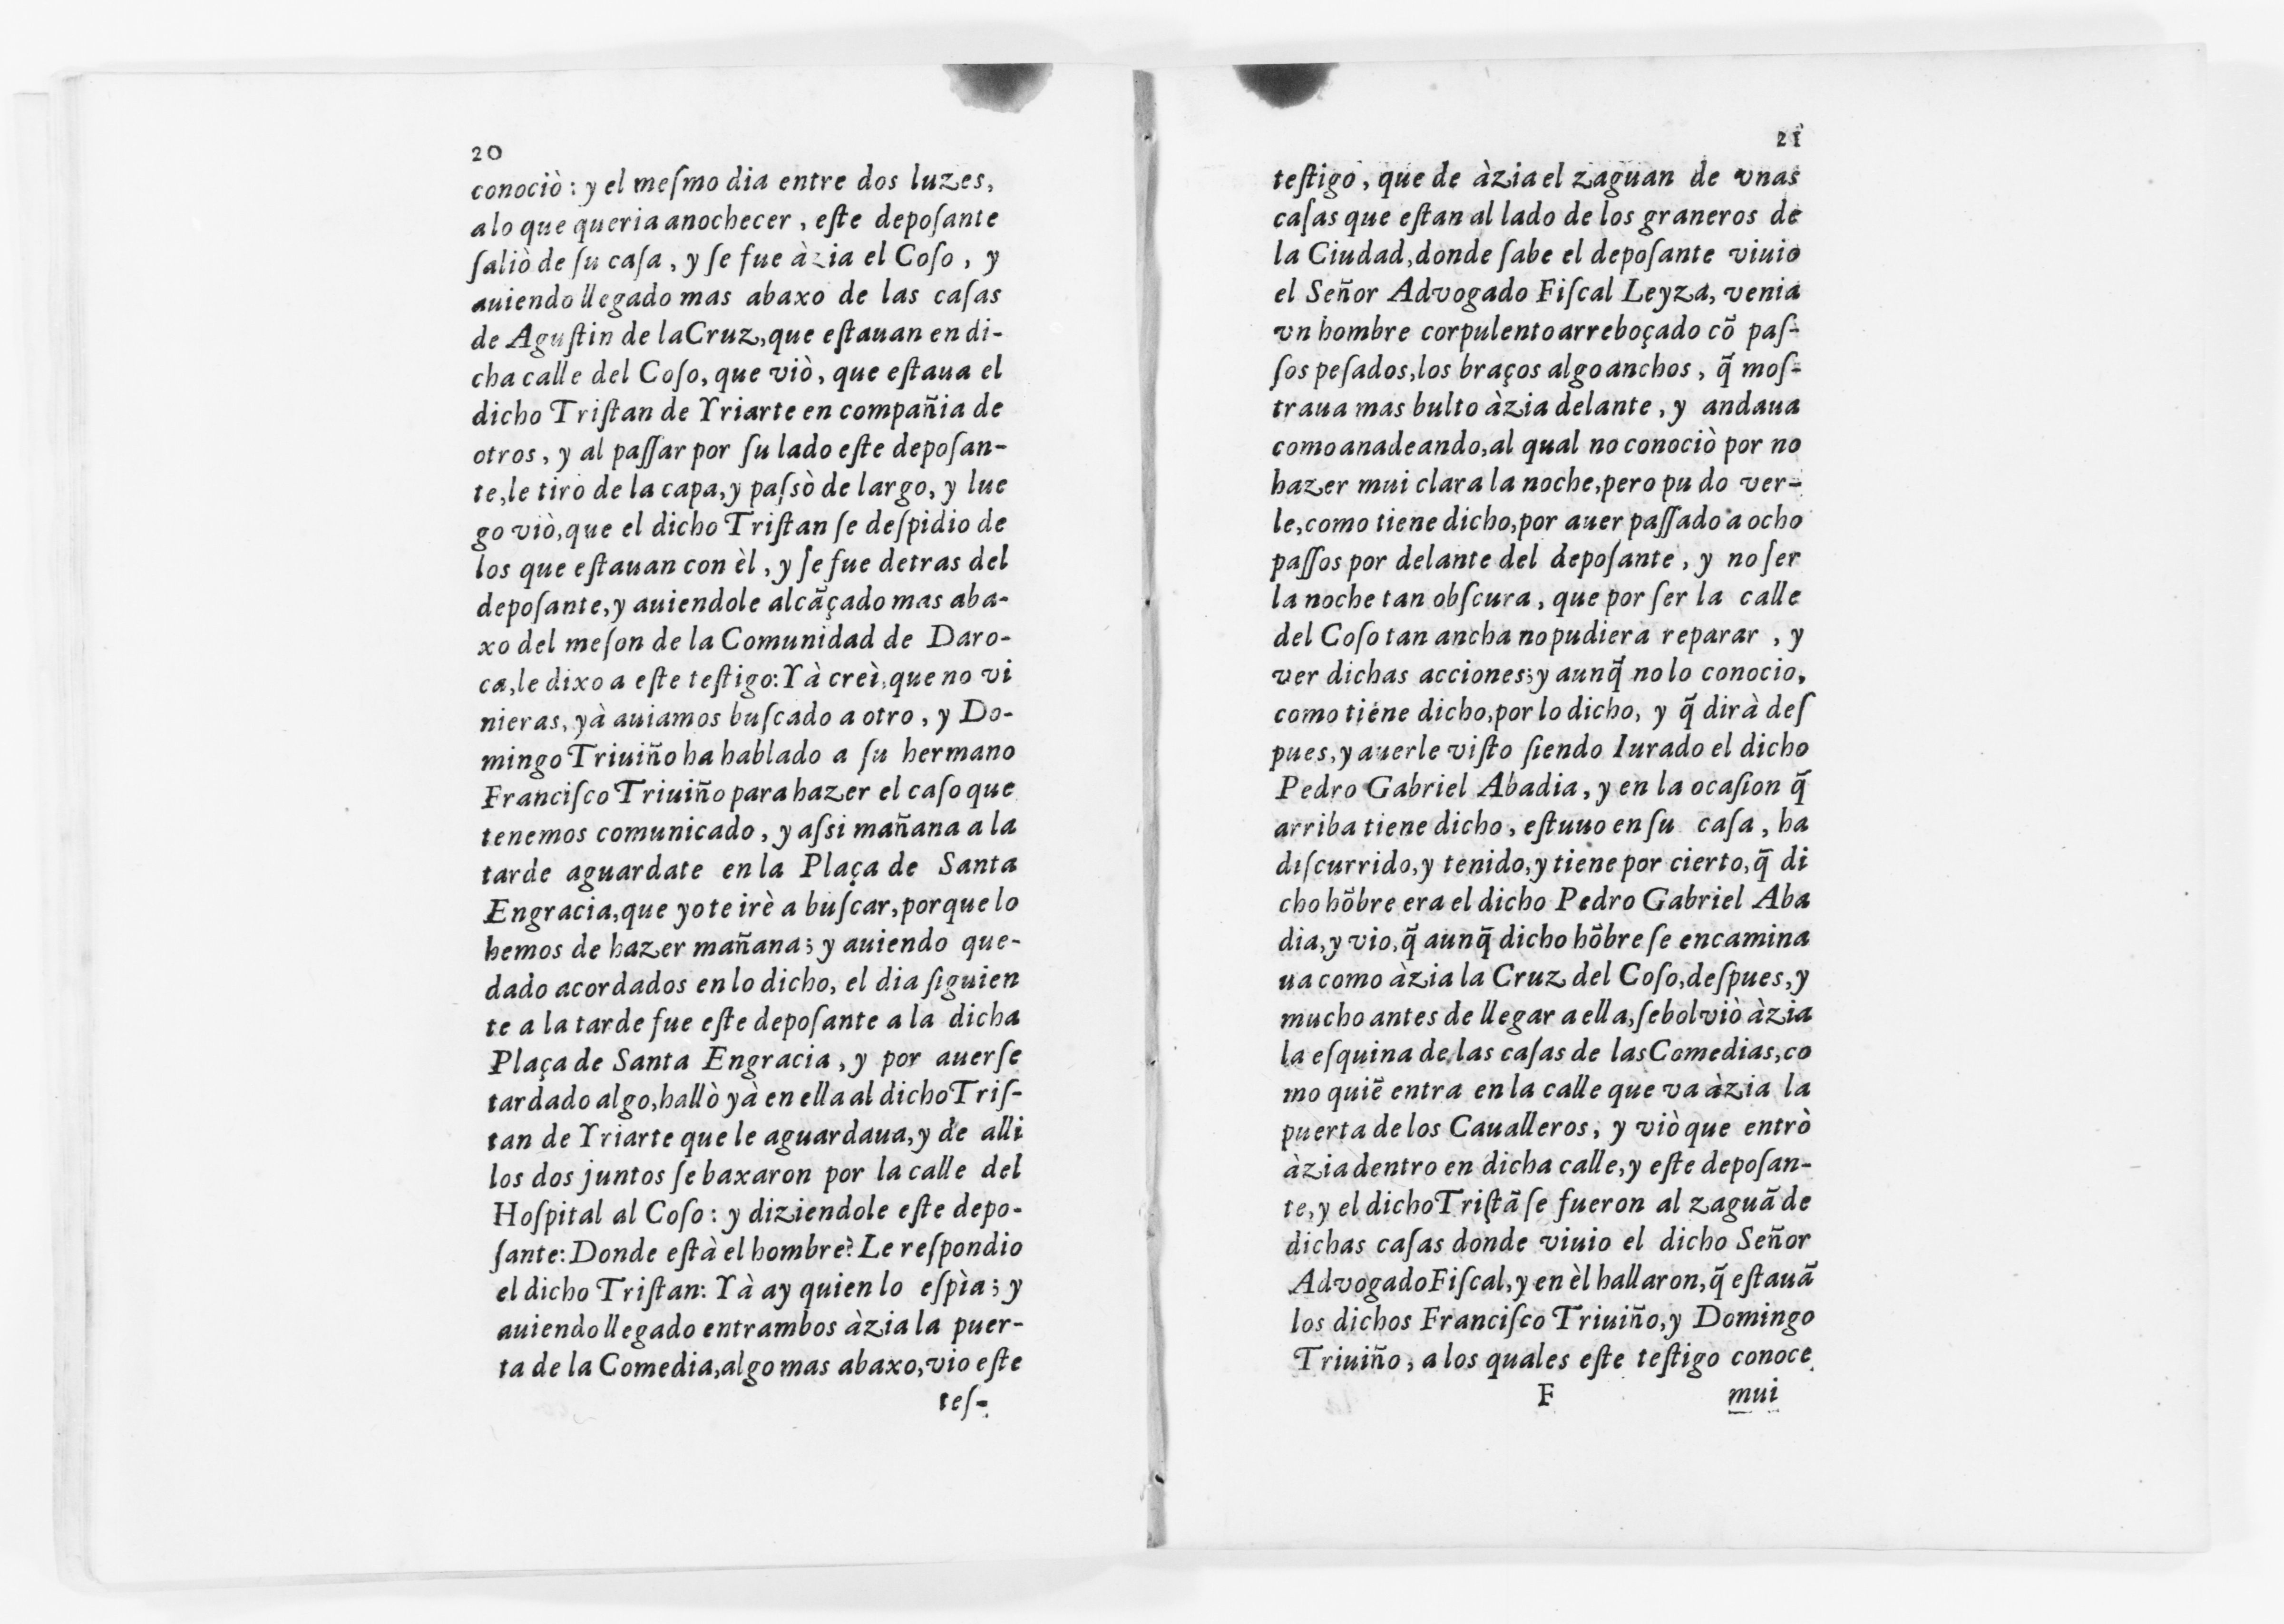 20
conociò : y el meſmo dia entre dos luzes,
a lo que queria anochecer, eſte depoſante
ſaliò de ſu caſa, y ſe fue àzia el Coſo, y
auiendo llegado mas abaxo de las caſas
de Aguſtin de la Cruz, que eſtauan en di-
cha calle del Coſo, que viò, que eſtaua el
dicho Triſtan de Yriarte en compañia de
otros, y al paſſar por ſu lado eſte depoſan-
te, le tirò de la capa, y paſsò de largo, y lue
go viò, que el dicho Triſtan ſe deſpidio de
los que eſtauan con èl, y ſe fue detras del
depoſante, y auiendole alcãçado mas aba-
xo del meſon de la Comunidad de Daro-
ca, le dixo a eſte teſtigo: Yà creì, que no vi
nieras, yà auiamos buſcado a otro, y Do-
mingo Triuiño ha hablado a ſu hermano
Franciſco Triuiño para hazer el caſo que
tenemos comunicado, y aſsi mañana a la
tarde aguardate en la Plaça de Santa
Engracia, que yo te irè a buſcar, porque lo
hemos de hazer mañana; y auiendo que-
dado acordados en lo dicho, el dia ſiguien
te a la tarde fue eſte depoſante a la dicha
Plaça de Santa Engracia, y por auerſe
tardado algo, hallò yà en ella al dicho Triſ-
tan de Yriarte que le aguardaua, y de alli
los dos juntos ſe baxaron por la calle del
Hoſpital al Coſo: y diziendole eſte depo-
ſante: Donde eſtà el hombre? Le reſpondio
el dicho Triſtan: Yà ay quien lo eſpìa; y
auiendo llegado entrambos àzia la puer-
ta de la Comedia, algo mas abaxo, vio eſte
teſ-
21
teſtigo, que de àzia el zaguan de vnas
caſas que eſtan al lado de los graneros de
la Ciudad, donde ſabe el depoſante viuio
el Señor Advogado Fiſcal Leyza, venia
vn hombre corpulento arreboçado cõ paſ-
ſos peſados, los braços algo anchos, q̃ moſ-
traua mas bulto àzia delante, y andaua
como anadeando, al qual no conociò por no
hazer mui clara la noche, pero pudo ver-
le, como tiene dicho, por auer paſſado a ocho
paſſos por delante del depoſante, y no ſer
la noche tan obſcura, que por ſer la calle
del Coſo tan ancha no pudiera reparar, y
ver dichas acciones; y aunq̃ no lo conocio,
como tiéne dicho, por lo dicho, y q̃ dirà deſ
pues, y auerle viſto ſiendo Iurado el dicho
Pedro Gabriel Abadia, y en la ocaſion q̃
arriba tiene dicho, eſtuuo en ſu caſa, ha
diſcurrido, y tenido, y tiene por cierto, q̃ di
cho hõbre era el dicho Pedro Gabriel Aba
dia, y vio, q̃ aunq̃ dicho hõbre ſe encamina
ua como àzia la Cruz del Coſo, deſpues, y
mucho antes de llegar a ella, ſe bolviò àzia
la eſquina de las caſas de las Comedias, co
mo quiẽ entra en la calle que va àzia la
puerta de los Caualleros, y viò que entrò
àzia dentro en dicha calle, y eſte depoſan-
te, y el dicho Triſtã ſe fueron al zaguã de
dichas caſas donde viuio el dicho Señor
Advogado Fiſcal, y en èl hallaron, q̃ eſtauã
los dichos Franciſco Triuiño, y Domingo
Triuiño, a los quales eſte teſtigo conoce
F mui